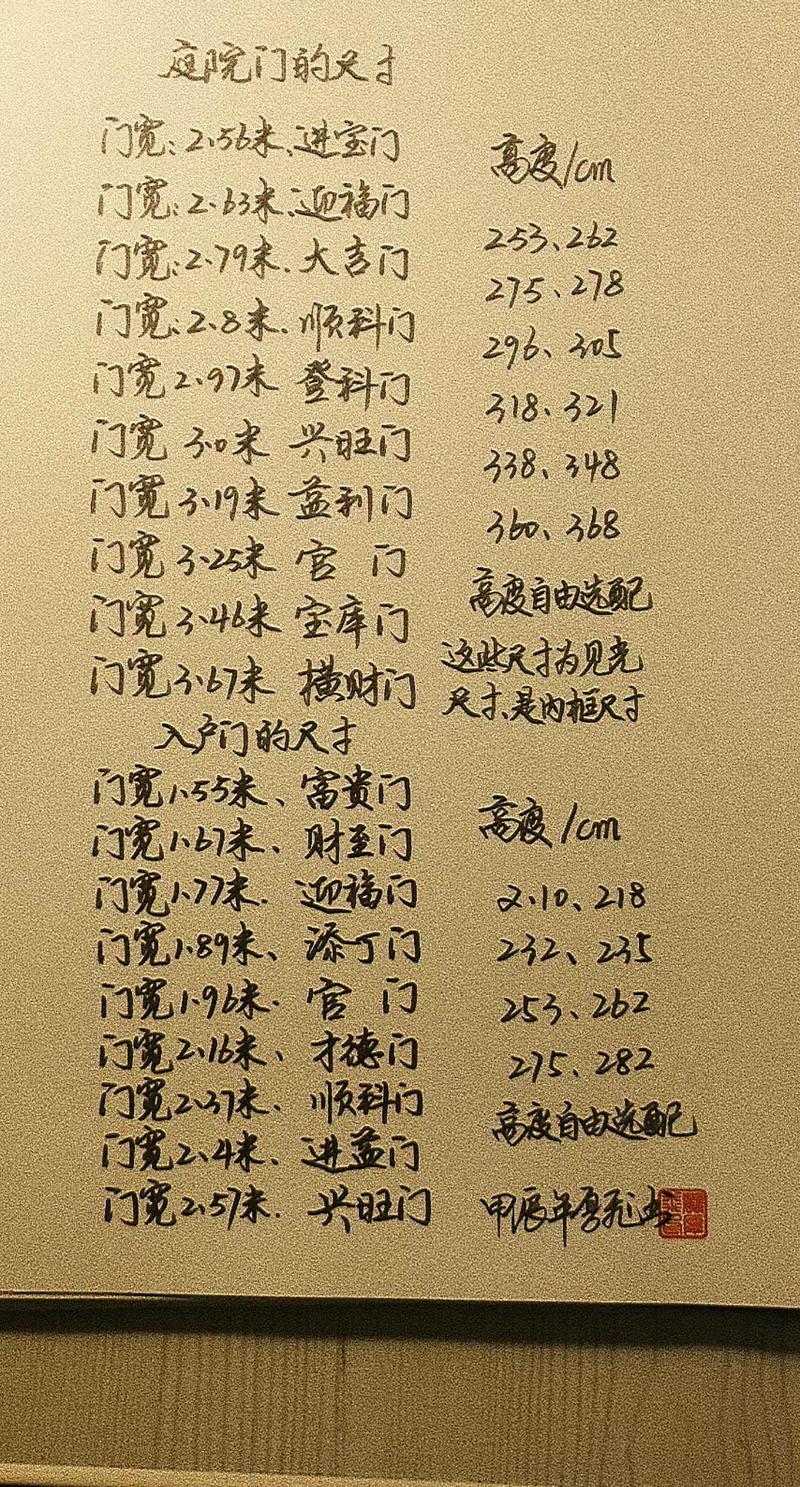 庭院门的尺寸
门宽:2.56米、进宝门
门宽:2.63米、迎福门
门宽:2.79米.大吉门
门宽:2.8米.顺科门
门宽2.97米 登科门
门宽3.0米 兴旺门
门宽3.19米 益利门
门宽3.25米 官 门
门宽3.46米 宝库门
门宽3.67米 横财门
高度/cm
253、262
275、278
296、305
318、321
338、348
360、368
高度自由选配
这些尺寸为见光
尺寸、是内框尺寸
入户门的尺寸
门宽1.55米、富贵门
门宽1.67米、财至门
门宽1.77米.迎福门
门宽1.89米、添丁门
门宽1.96米.官 门
门宽2.16米、才德门
门宽2.37米.顺科门
门宽2.4米.进益门
门宽2.57米.兴旺门
高度/cm
2.10、218
232、235
253、262
275、282
高度自由选配
甲辰年夏